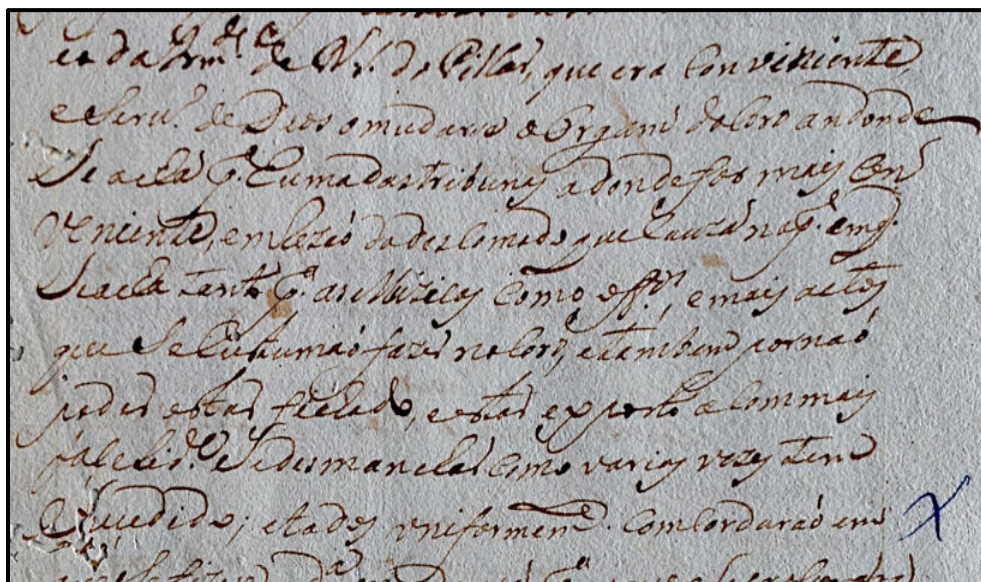 co da Irm.de de N. Sr.a do Pillar, que era conviniente,
e Serv.o de Deos o mudarse o Orgam do Coro andonde
Se acha p.a huma das tribunas adonde for mais con
veniente, em rezaó do descomodo que cauza na p.e em q.
Se acha tanto p.a as Muzicas como off.os, e mais actos
que Se Custumaó fazer no Coro, e tambem por naó
poder estar fechado, e estar exposto a com mais
facelid.e Se desmanchar como varias vezes tem
Sucedido; e todos uniformem.te comcordaraó em
que Se